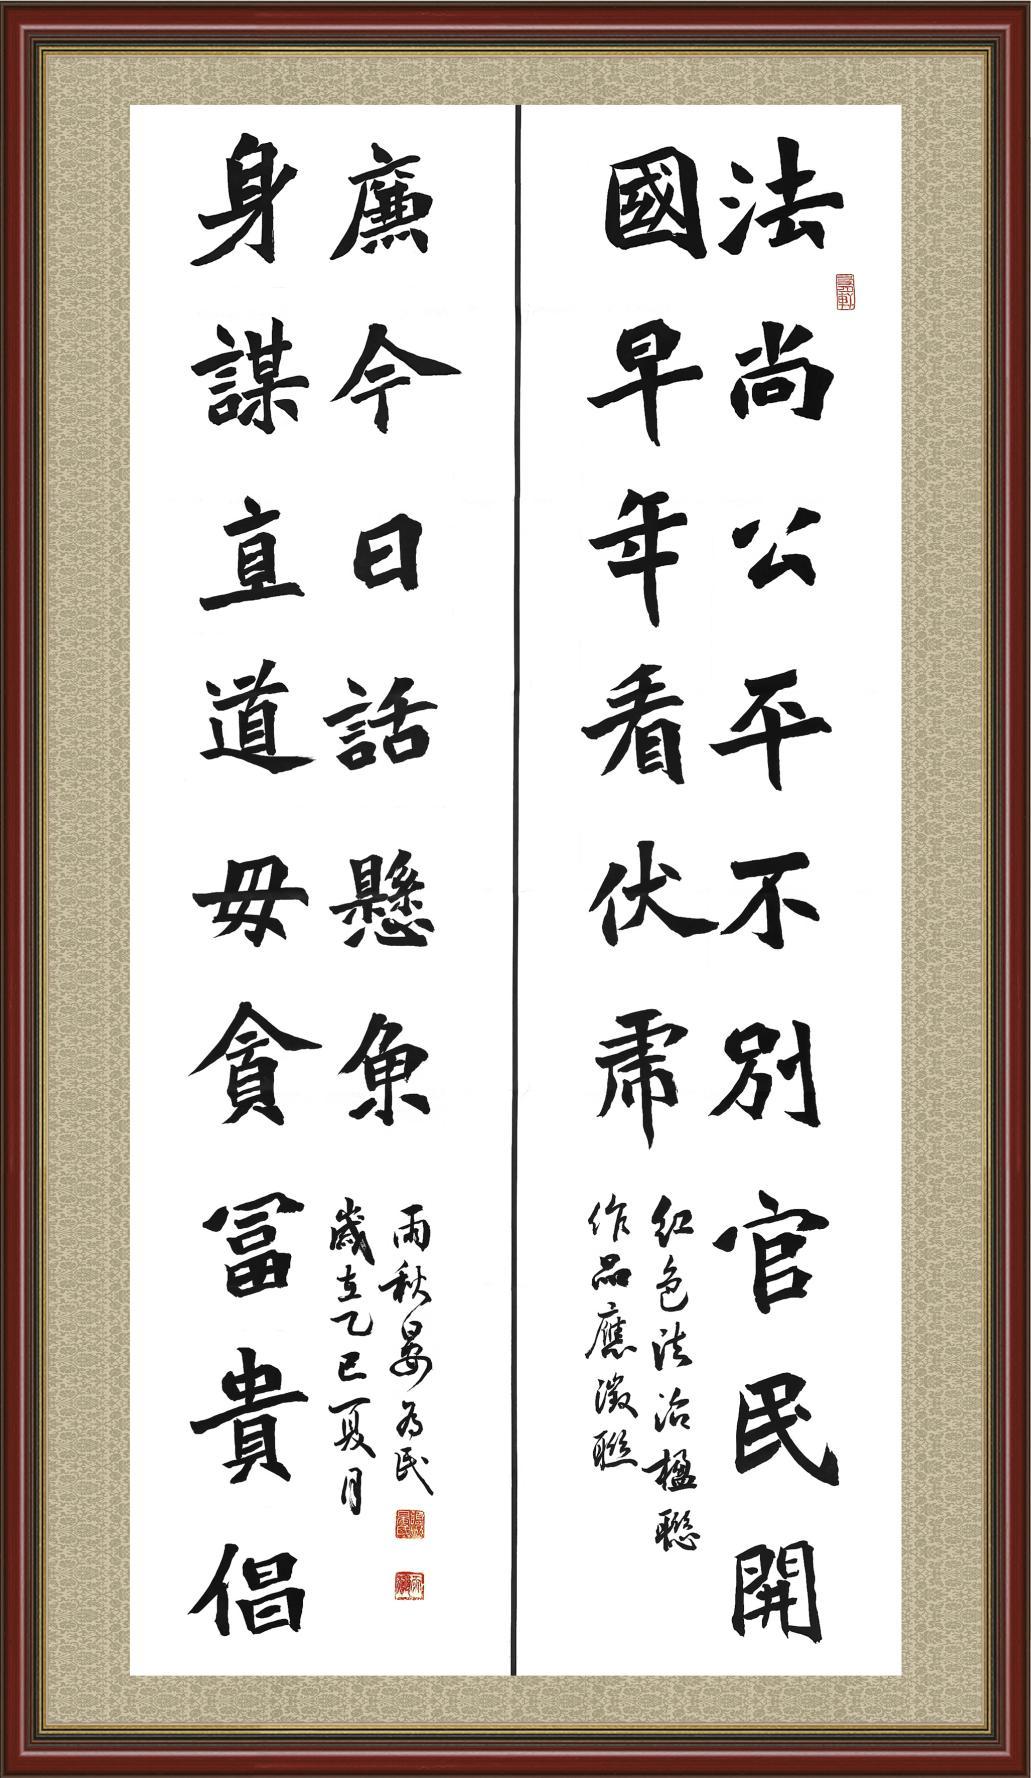 法尚公平不別官民開
國早年看伏虎
紅色法治楹聯
作品應徵聯
身謀直道毋貪冨貴倡
廉今日話懸魚
歲在乙巳夏月
雨秋晏為民